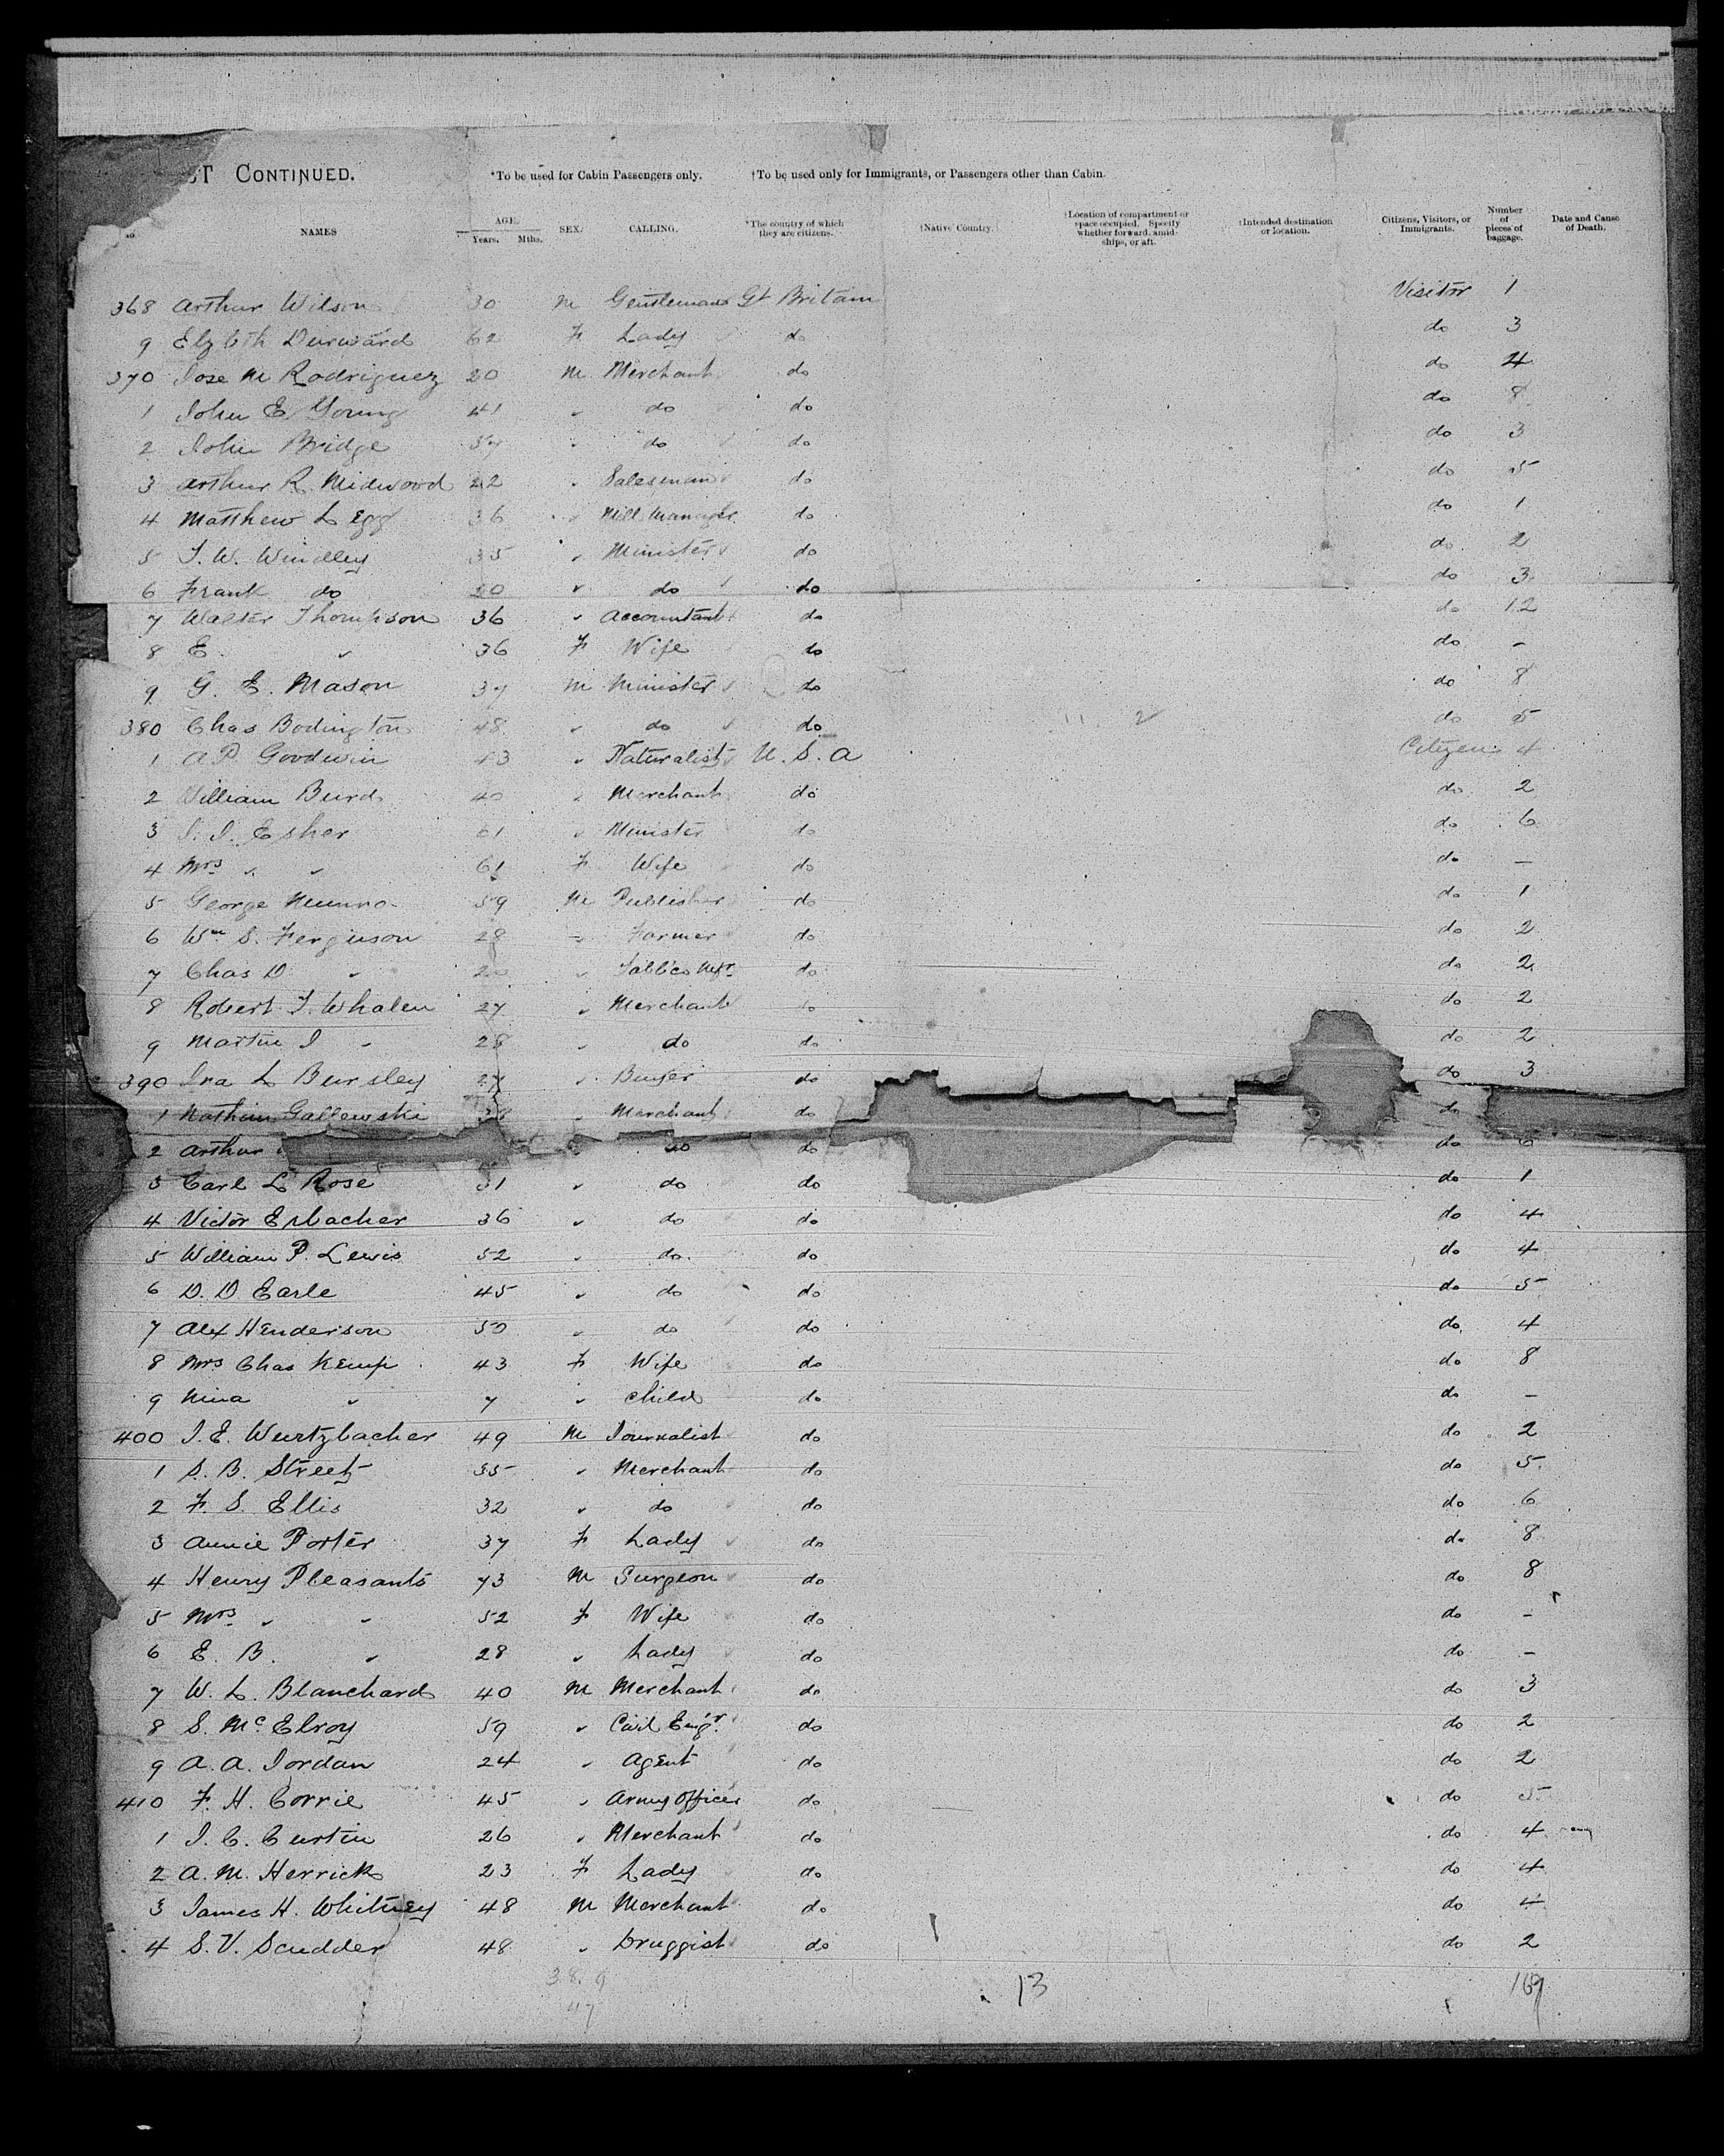 ST CONTINUED.
*To be used for Cabin Passengers only. †To be used only for Immigrants, or Passengers other than Cabin.
No. NAMES AGE. Years. Mths. SEX. CALLING. *The country of which they are citizens. †Native Country. †Location of compartment or space occupied. Specify whether forward, amidships, or aft. †Intended destination or location. Citizens, Visitors, or Immigrants. Number of pieces of baggage. Date and Cause of Death.
368 Arthur Wilson 30 M Gentleman Gt Britain Visitor 1
9 Elzbth Durward 62 F Lady do do 3
370 Jose M Rodriguez 20 M Merchant do do 4
1 John E Young 41 " do do do 8
2 John Bridge 57 " do do do 3
3 Arthur R. Midwood 22 " Salesman do do 5
4 Matthew L Egg 36 " Mill Manager do do 1
5 T. W. Windley 35 " Minister do do 2
6 Frank do 20 " do do do 3
7 Walter Thompson 36 " Accountant do do 12
8 E. " 36 F Wife do do -
9 G. E. Mason 37 M Minister do do 8
380 Chas Bodington 48 " do do do 5
1 A P. Goodwin 43 " Naturalist U. S. A Citizen 4
2 William Burd 40 " Merchant do do 2
3 J. J. Esher 61 " Minister do do 6
4 Mrs " " 61 F Wife do do -
5 George Munro 59 M Publisher do do 1
6 Wm S. Ferguson 28 " Farmer do do 2
7 Chas D " " do do 2
8 Robert T. Whalen 27 " Merchant do do 2
9 Martin J " 28 " do do do 2
390 Ira L Bursley 27 " Buyer do do 3
1 Nathan Gallewski 38 " Merchant do do
2 Arthur " do do do 6
3 Carl L Rose 31 " do do do 1
4 Victor Erbacher 36 " do do do 4
5 William P. Lewis 52 " do do do 4
6 D. D Earle 45 " do do do 5
7 Alex Henderson 50 " do do do 4
8 Mrs Chas Kemp 43 F Wife do do 8
9 Nina " 7 " Child do do -
400 J. E. Wurtzbacher 49 M Journalist do do 2
1 S. B. Streetz 35 " Merchant do do 5
2 F. S. Ellis 32 " do do do 6
3 Annie Porter 37 F Lady do do 8
4 Henry Pleasants 73 M Surgeon do do 8
5 Mrs " " 52 F Wife do do -
6 E. B. " 28 " Lady do do -
7 W. L. Blanchard 40 M Merchant do do 3
8 S. McElroy 59 " Civil Engr. do do 2
9 A. A. Jordan 24 " Agent do do 2
410 F. H. Corrie 45 " Army Officer do do 5
1 J. C. Curtin 26 " Merchant do do 4
2 A. M. Herrick 23 F Lady do do 4
3 James H. Whitney 48 M Merchant do do 4
4 S. V. Scudder 48 " Druggist do do 2
38. 9 13 169
47